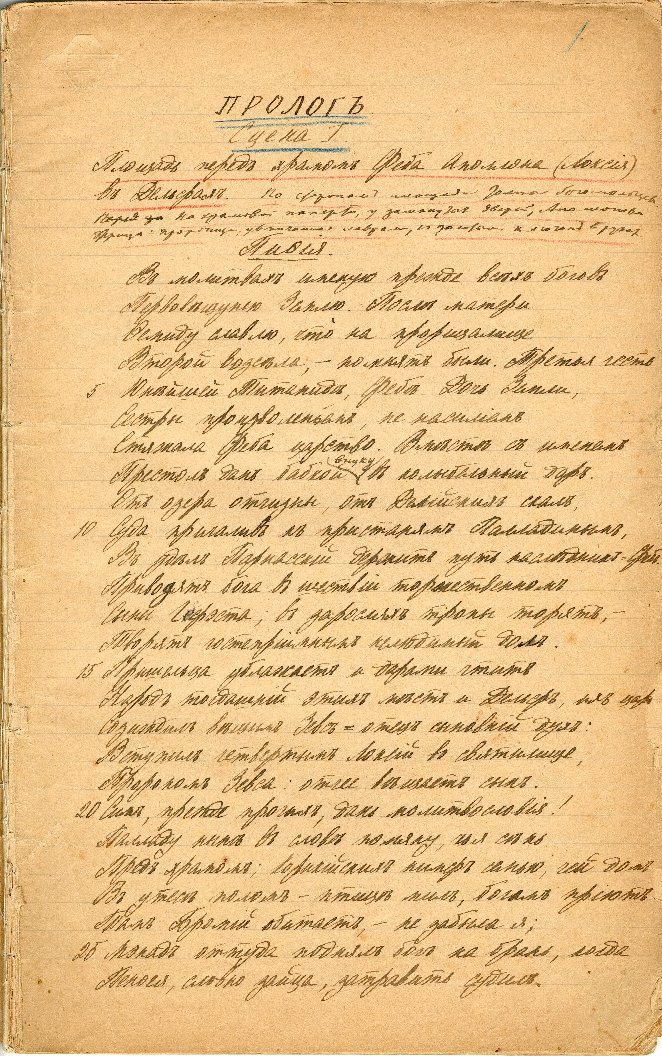 1
ПРОЛОГЪ
Сцена I
Площадь передъ храмомъ Феба Аполлона (Локсія)
въ Дельфахъ. По ступенямъ площади
на храмовой паперти, у замкнутыхъ дверей,
жрица-пророчица, увѣнчанная лавромъ, съ ключомъ въ рукахъ
Пиѳія.
Въ молитвахъ именую прежде всѣхъ боговъ
Первовѣщунью Землю. Послѣ матери
Ѳемиду славлю, что на прорицалище
Второй возсѣла, – помнятъ были. Третья честь
5 Юнѣйшей Титанидѣ, Фебѣ. Дочь Земли,
Сестры произволеньемъ, не насиліемъ
Стяжала Феба царство. Вмѣстѣ съ именемъ
Престолъ данъ бабкой внуку въ колыбельный даръ.
Отъ озера отчизны, отъ Делійскихъ скалъ,
10 Суда причаливъ къ пристанямъ Палладинымъ,
Въ удѣлъ Парнасскій держитъ путь наслѣдникъ-Фебъ.
Приводятъ бога въ шествіи торжественномъ
Сыны Гефэста; въ заросляхъ тропы торятъ, –
Творятъ гостепріимнымъ нелюдимый долъ.
15 Пришельца ублажаетъ и дарами чтитъ
Народъ тогдашній этихъ мѣстъ и Дельфъ, ихъ царь
вѣщимъ Зевсъ-отецъ сыновній духъ:
Вступилъ четвертымъ Локсій въ святилище,
Пророкомъ Зевса: отчее вѣщаетъ сынъ.
20 Симъ, прежде прочихъ, дань молитвословія!
Палладу нынѣ въ словѣ помяну, чья сѣнь
Предъ храмомъ; Корикійскихъ нимфъ семью, чей домъ
Въ утесѣ поломъ – птицамъ милъ, богамъ пріютъ.
Тамъ Бромій обитаетъ, – не забыла я;
25 Мэнадъ оттуда поднялъ богъ на брань, когда
Пенѳея, словно зайца, затравить судилъ.